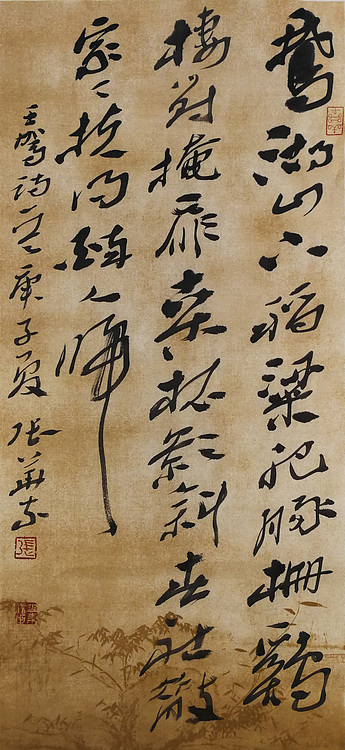 鵞湖山下稻粱肥豚柵鷄
棲對掩扉桑柘影斜春社散
家々扶得醉人歸
王駕詩庚子夏張華
張